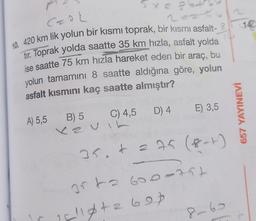 10. 420 km lik yolun bir kısmı toprak, bir kısmı asfalt-
tır. Toprak yolda saatte 35 km hızla, asfalt yolda
ise saatte 75 km hızla hareket eden bir araç, bu
yolun tamamını 8 saatte aldığına göre, yolun
asfalt kısmını kaç saatte almıştır?
A) 5,5 B) 5 C) 4,5 D) 4 E) 3,5
35.t = 75(8-t)
35t = 600-75t
110t = 600
8-60
657 YAYINEVİ